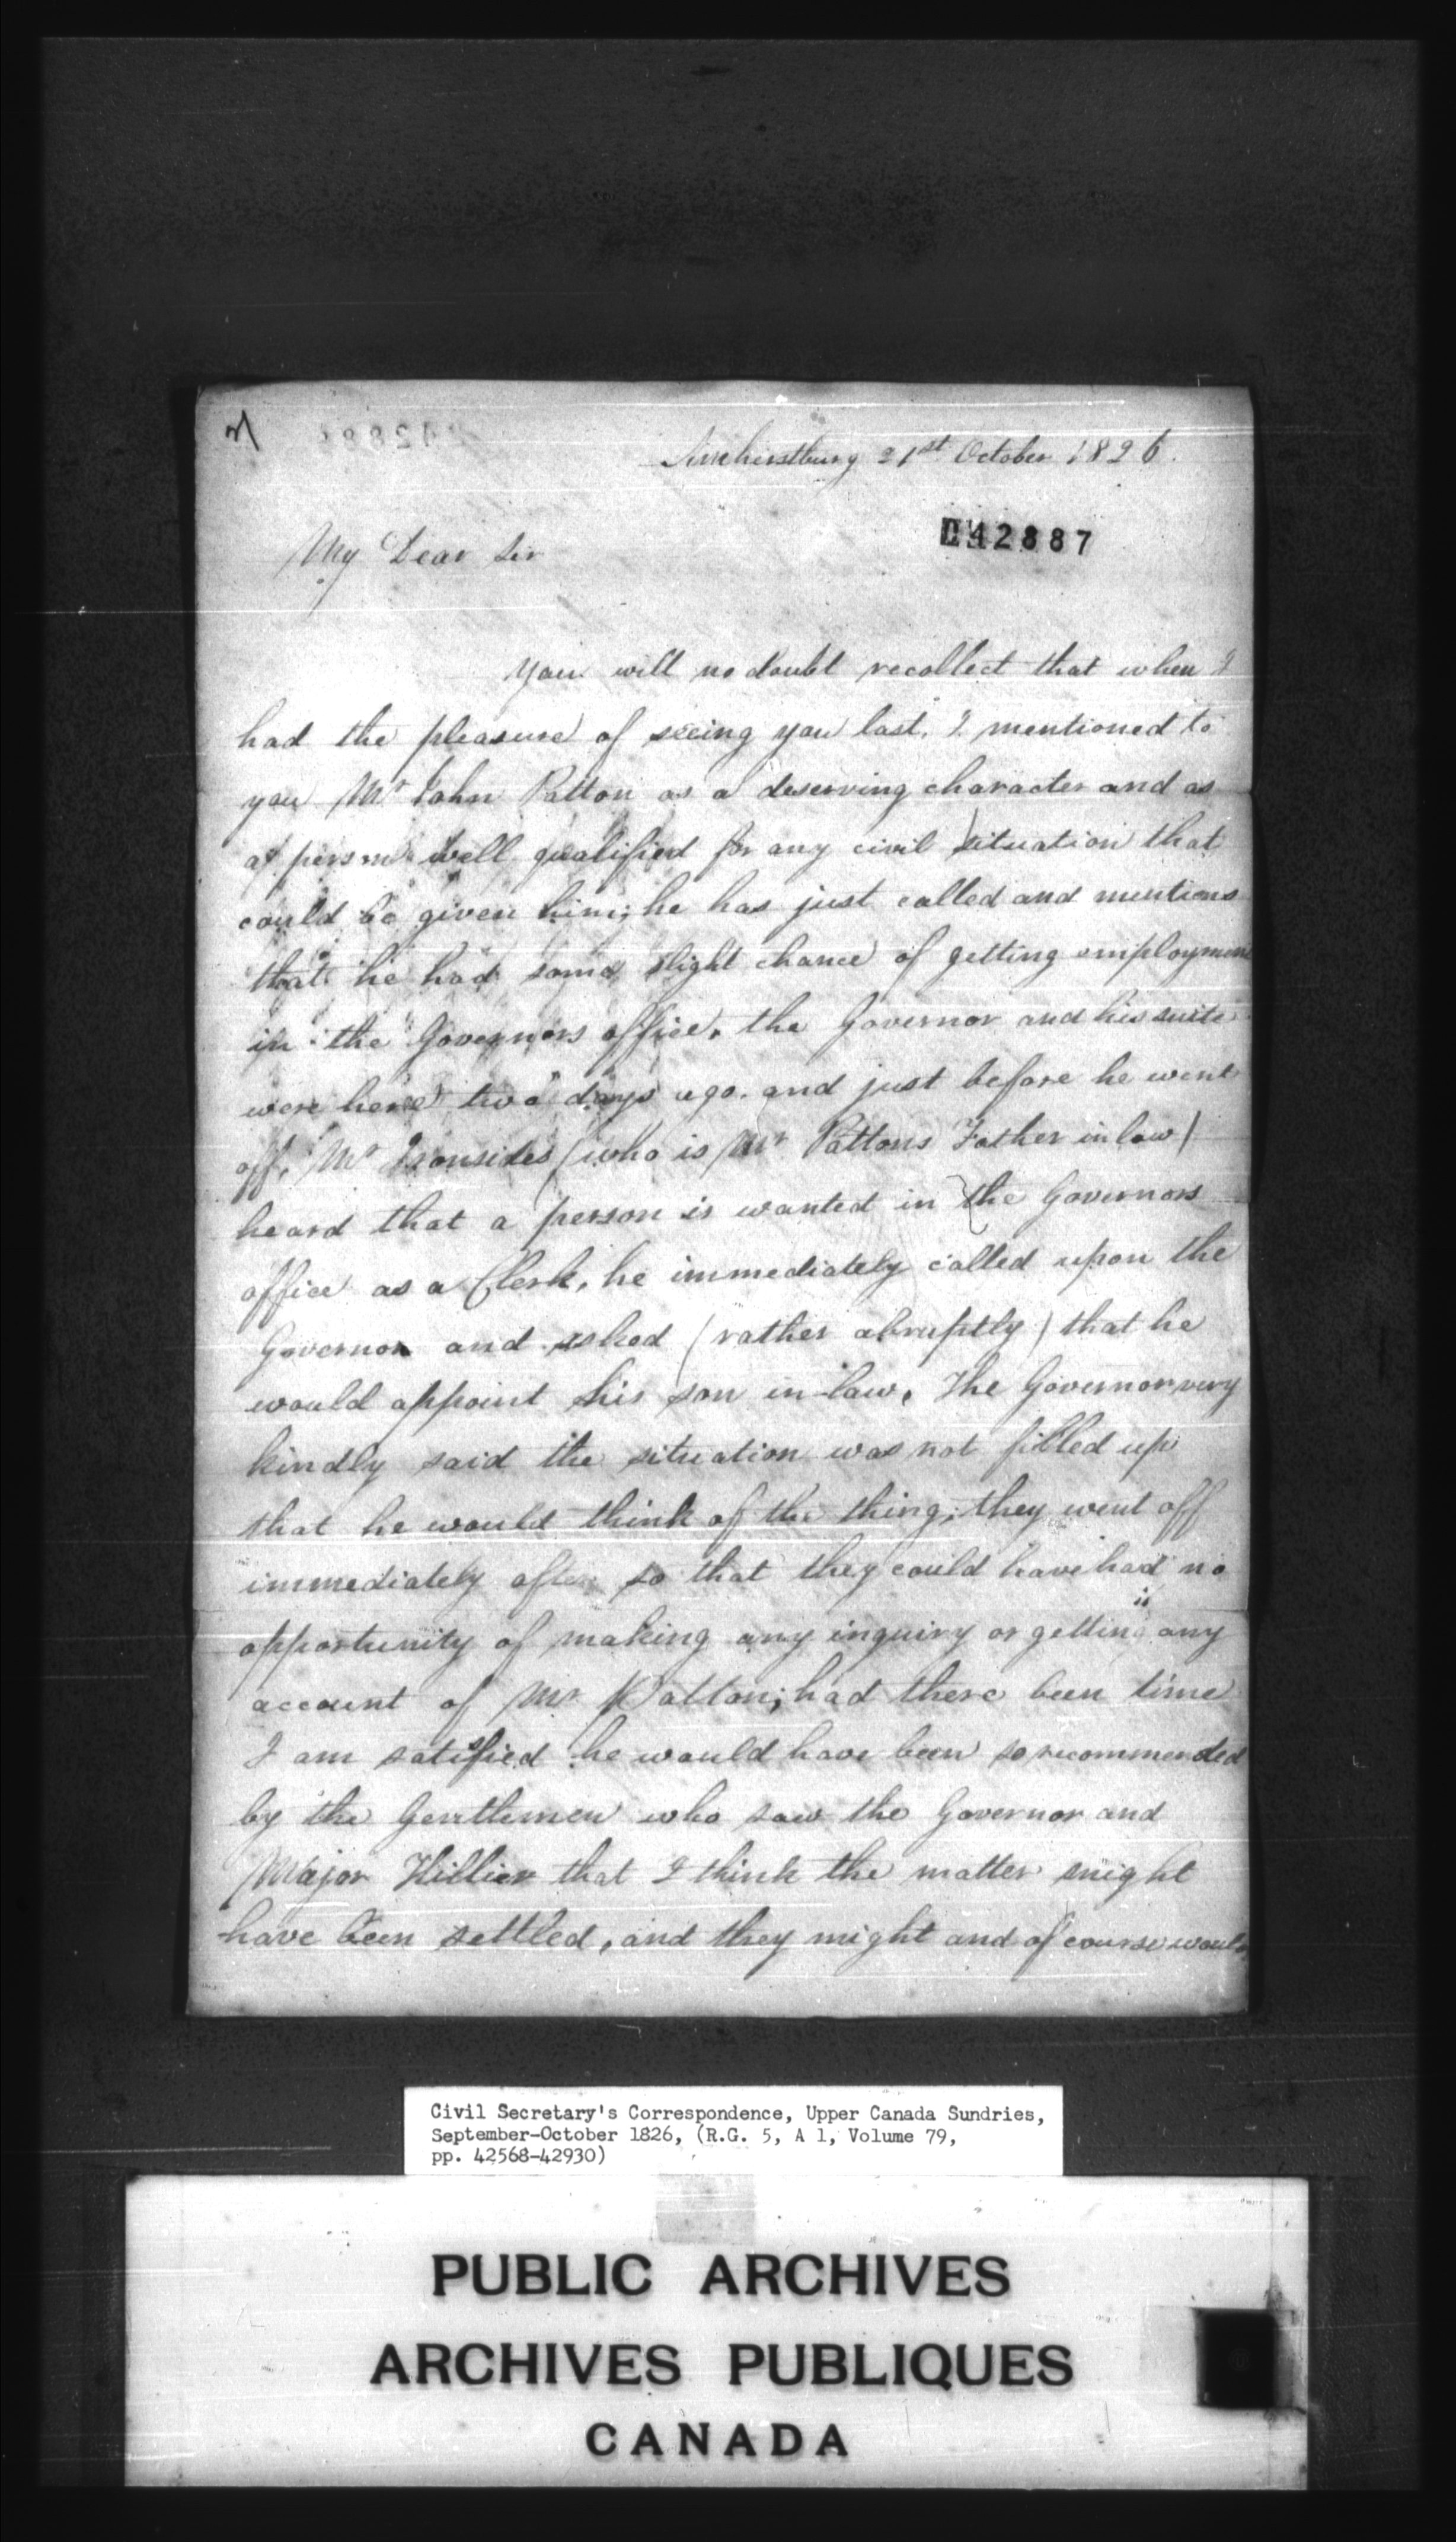 Amherstburg 21st October 1826.
042887
My Dear Sir
You will no doubt recollect that when I
had the pleasure of seeing you last, I mentioned to
you Mr John Patton as a deserving character and as
a person well qualified for any civil situation that
could be given him; he has just called and mentions
that he had some slight chance of getting employment
in the Governors office, the Governor and his suite
were here two days ago. and just before he went
off, Mr Ironsides (who is Mr Pattons Father in law)
heard that a person is wanted in the Governors
office as a Clerk, he immediately called upon the
Governor and asked (rather abruptly) that he
would appoint his son in-law, The Governor very
kindly said the situation was not filled up
that he would think of the thing; they went off
immediately after so that they could have had no
opportunity of making any inquiry or getting any
account of Mr Patton; had there been time
I am satisfied he would have been so recommended
by the Gentlemen who saw the Governor and
Major Hillier that I think the matter might
have been settled, and they might and of course would
Civil Secretary's Correspondence, Upper Canada Sundries,
September-October 1826, (R.G. 5, A 1, Volume 79,
pp. 42568-42930)
PUBLIC ARCHIVES
ARCHIVES PUBLIQUES
CANADA